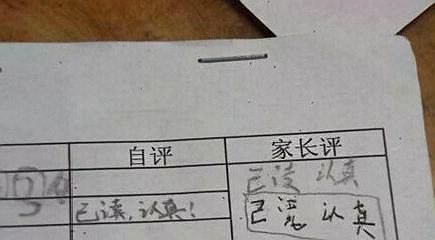 自评 家长评
已读 认真
已读,认真! 已读 认真